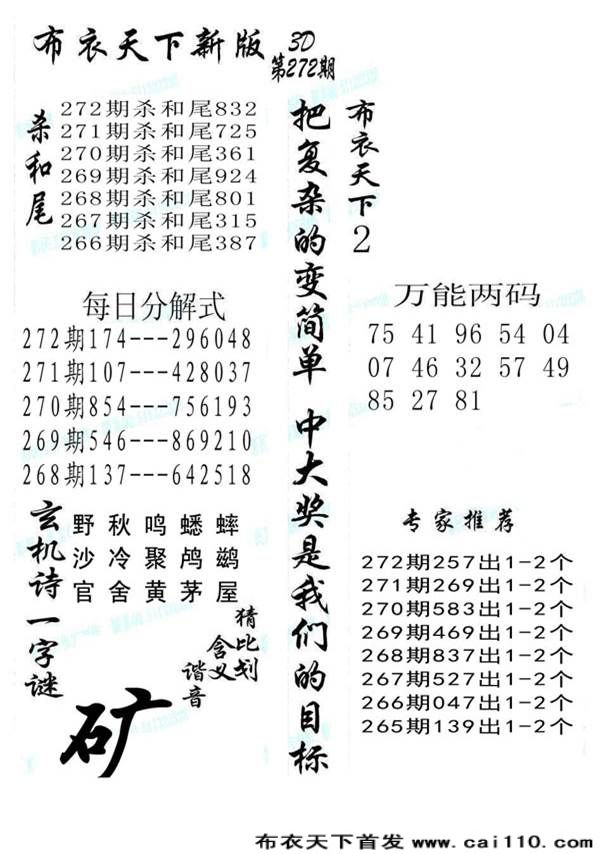 布衣天下新版
3D
第272期
杀和尾
272期杀和尾832
271期杀和尾725
270期杀和尾361
269期杀和尾924
268期杀和尾801
267期杀和尾315
266期杀和尾387
每日分解式
272期174---296048
271期107---428037
270期854---756193
269期546---869210
268期137---642518
玄机诗
野秋鸣蟋蟀
沙冷聚鸬鹚
官舍黄茅屋
一字谜
猜比划
含义
谐音
矿
把复杂的变简单 中大奖是我们的目标
布衣天下2
万能两码
75 41 96 54 04
07 46 32 57 49
85 27 81
专家推荐
272期257出1-2个
271期269出1-2个
270期583出1-2个
269期469出1-2个
268期837出1-2个
267期527出1-2个
266期047出1-2个
265期139出1-2个
布衣天下首发 www.cai110.com